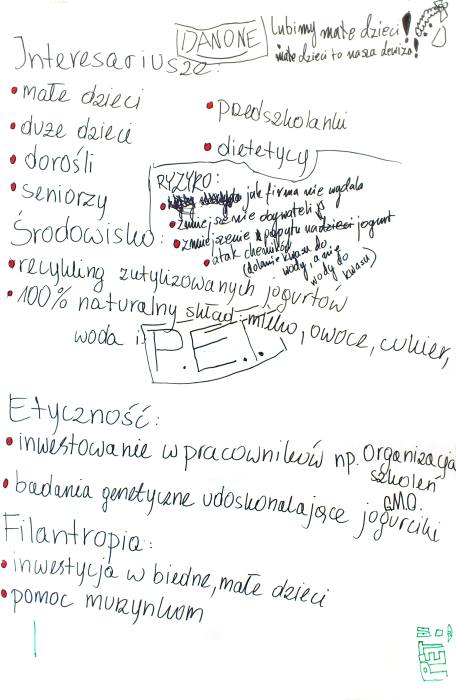 DANONE
Lubimy małe dzieci!
małe dzieci to nasza dewiza!
Interesariusze:
• małe dzieci
• duże dzieci
• dorośli
• seniorzy
• przedszkolanki
• dietetycy
RYZYKO:
• jak firma nie wydala
• zmniejszenie obywateli
• zmniejszenie popytu na jogurt
• atak chemików
(dolanie kwasu do
wody, a nie
wody do
kwasu)
Środowisko:
• recykling zutylizowanych jogurtów
• 100% naturalny skład: mleko, owoce, cukier,
woda i
P.E.I.
Etyczność:
• inwestowanie w pracowników np. Organizacja
szkoleń
• badania genetyczne udoskonalające jogurciki
GMO.
Filantropia:
• inwestycja w biedne, małe dzieci
• pomoc murzynkom